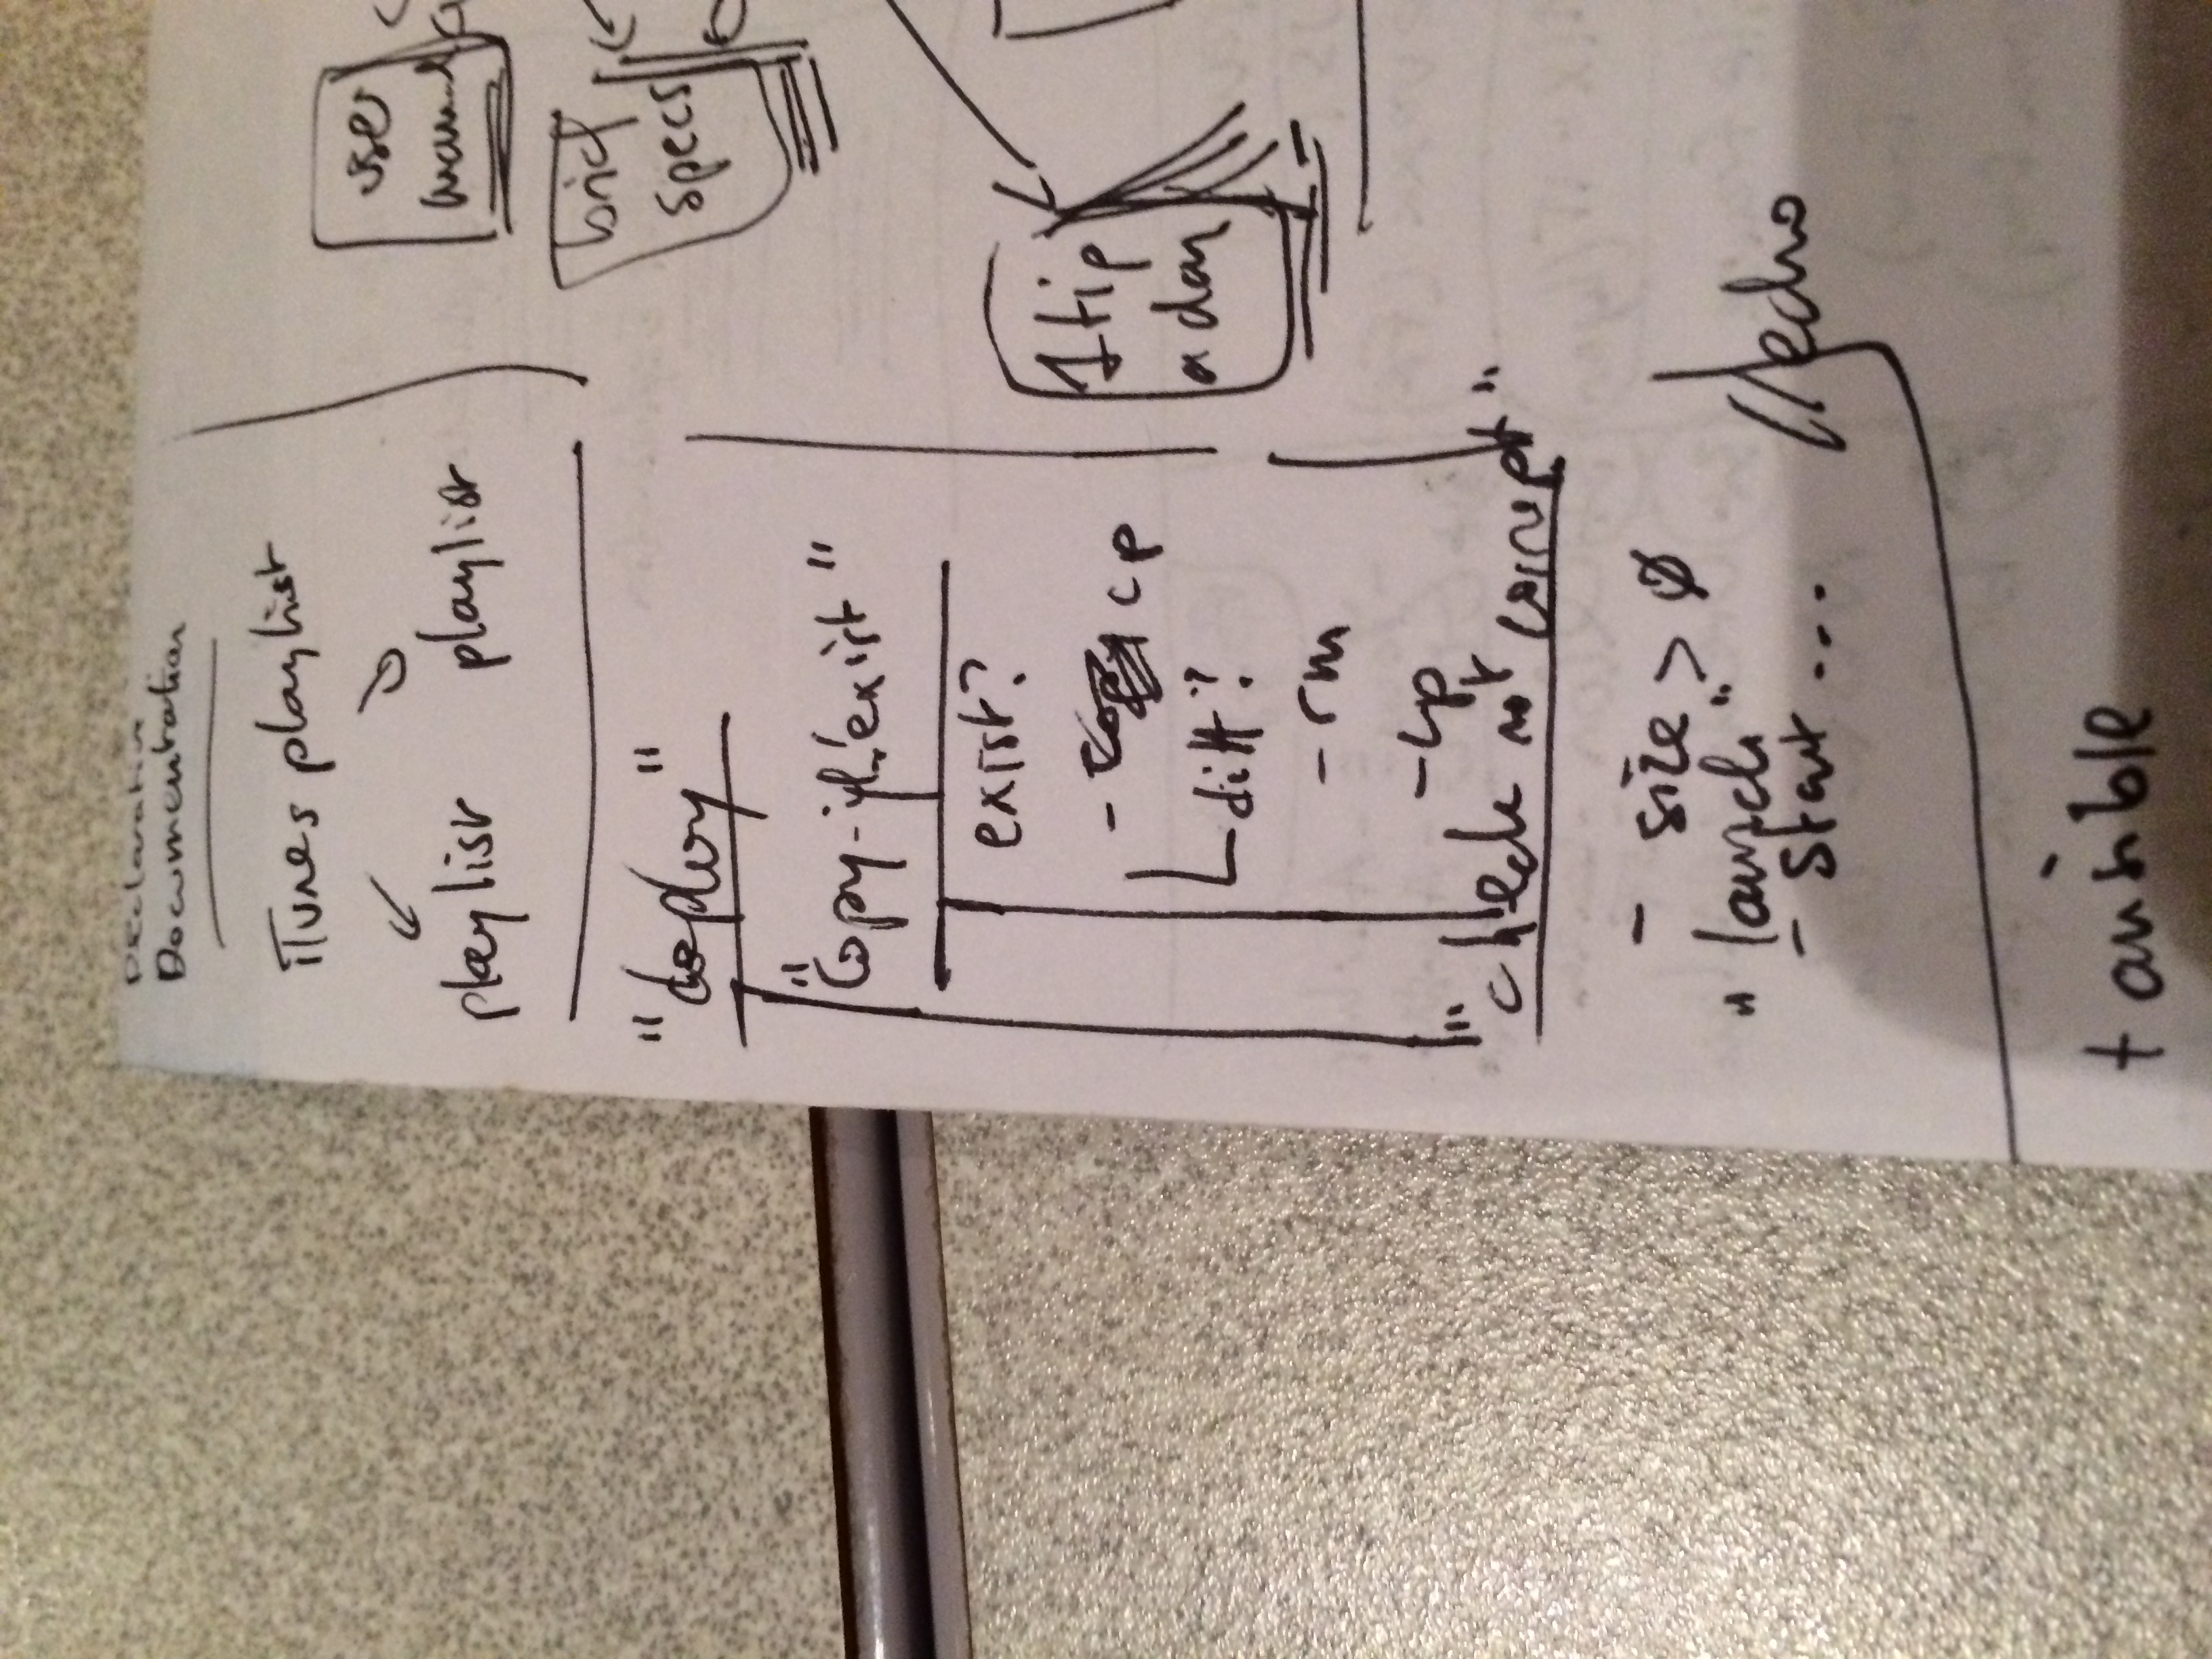 Declarative
Documentation
iTunes playlist
playlist playlist
"deploy"
"Copy-if!exist"
exist?
- cp
diff?
- rm
- cp
"check not corrupt"
- size > Ø
"launch"
- Start ...
//echo
+ ansible
user
manual
brief
specs
1 tip
a day